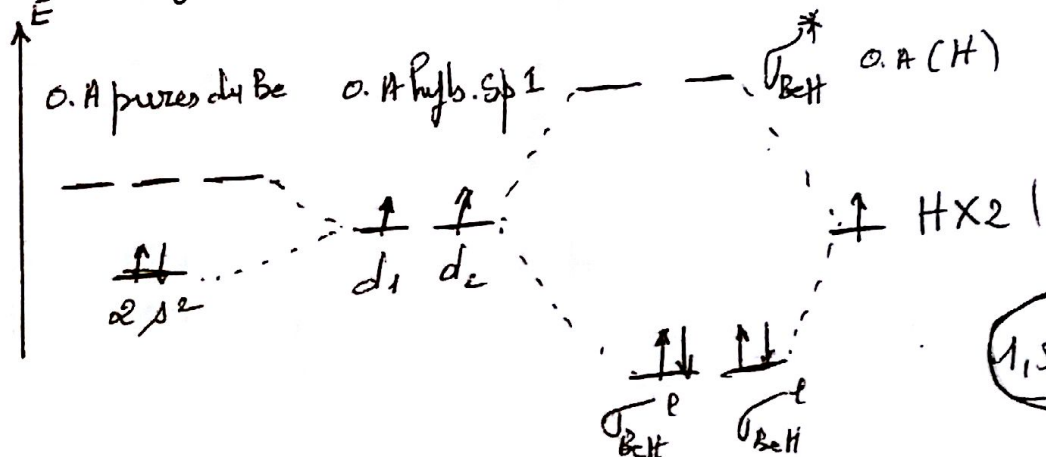 E
O.A pures du Be
O.A hyb. Sp1
σ*BeH
O.A (H)
2s²
d₁ d₂
H X2
σℓBeH σℓBeH